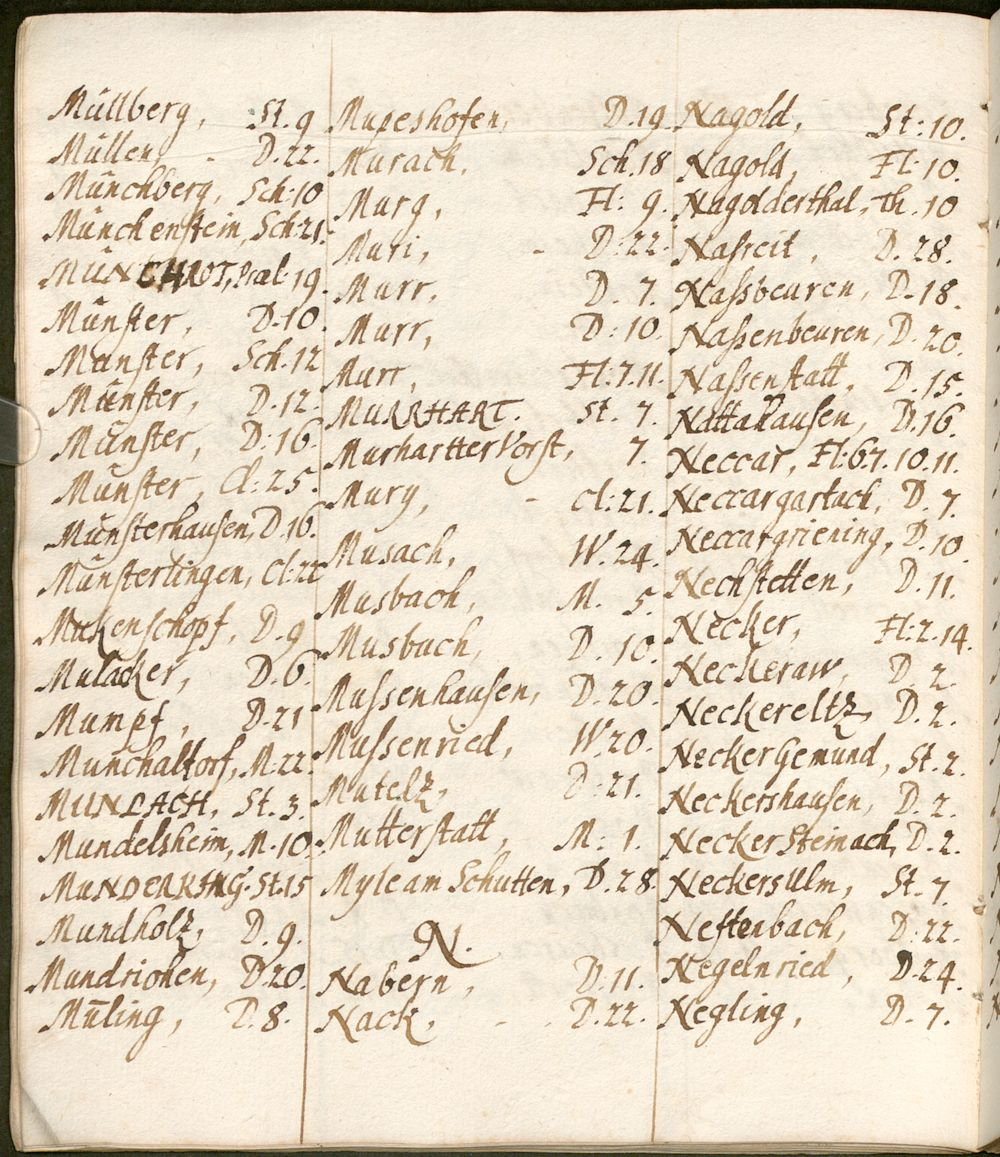 Müllberg, St. 9
Müllen, - D. 22.
Münchberg, Sch: 10
Münchenstein, Sch: 21.
MÜNCHROT, Præl: 19.
Münster, D. 10.
Münster, Sch. 12
Münster, D. 12.
Münster, D. 16.
Münster, Cl: 25.
Münsterhausen, D. 16.
Münsterlingen, Cl: 22
Mukenschopf, D. 9
Mulacker, D. 6.
Mumpf, D. 21
Munchaltorf, M. 22.
MUNDACH, St. 3.
Mundelsheim, M. 10.
MUNDERKING. St. 15
Mundholz, D. 9.
Mundrichen, D. 20.
Müling, D. 8.
Mupeshofen, D. 19.
Murach. Sch. 18
Murg, Fl: 9.
Muri, - D: 22.
Murr, D. 7.
Murr, D: 10.
Murr, Fl: 7. 11.
MURRHART. St. 7.
Murhartter Vorst, 7.
Mury, - Cl: 21.
Musach, W. 24.
Musbach, M. 5.
Musbach, D. 10.
Mussenhausen, D. 20.
Mussenried, W. 20.
Mutelz, D: 21.
Mutterstatt, M: 1.
Myle am Schutten, D. 28.
N.
Nabern, D. 11.
Nack, - - D. 22.
Nagold, St: 10.
Nagold, Fl: 10.
Nagolderthal, Th. 10
Nasreit, D. 28.
Nassbeuren, D. 18.
Nassenbeuren, D. 20.
Nassenstatt, D. 15.
Nattahausen, D. 16.
Neccar, Fl: 6. 7. 10. 11.
Neccargartach, D. 7.
Neccargriening, D. 10.
Nechstetten, D. 11.
Necker, Fl: 2. 14.
Neckeraw, D. 2.
Neckereltz, D. 2.
Necker Gemund, St. 2.
Neckershausen, D. 2.
Necker Steinach, D. 2.
Neckers Ulm, St. 7
Neftenbach, D: 22.
Negelnried, D. 24.
Negling, D. 7.